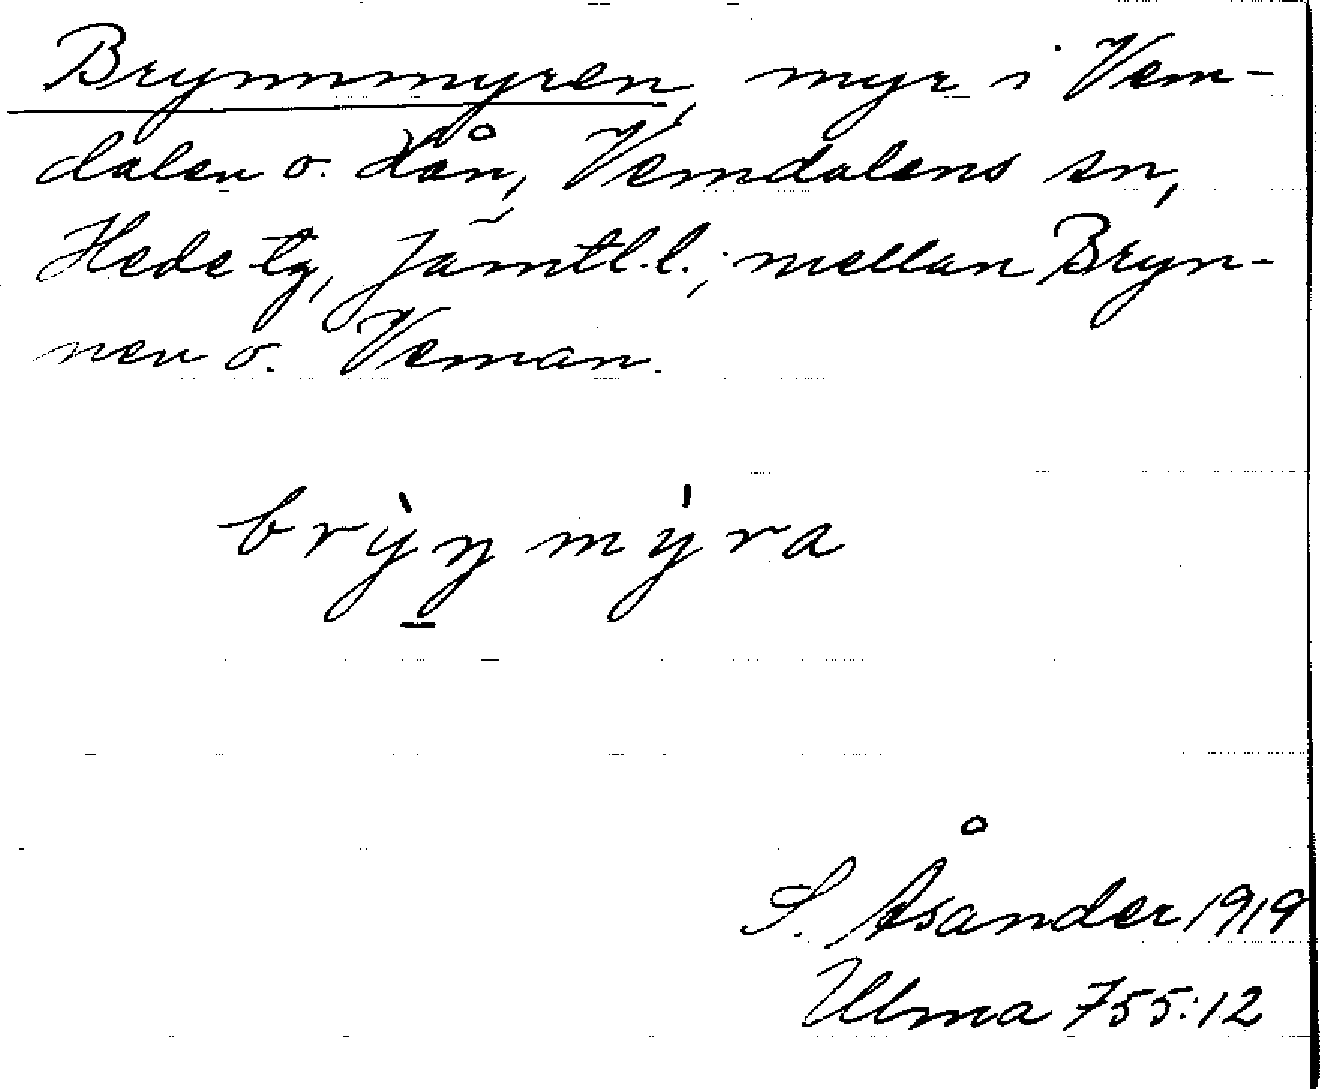 Brynnmyren, myr i Vem-
dalen o. Xån, Vemdalens sn,
Hede tg, Jämtl.l.; mellan Bryn-
nen o. Veman.
brỳn̠mýra
S. Åsander 1919
Ulma 755:12